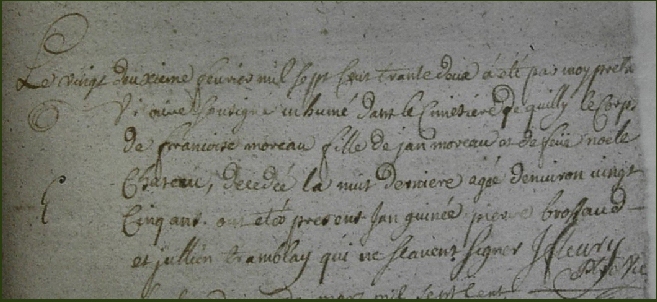 Le vingt deuxieme fevrier mil sept cent trante deux á eté par moy pretre
Vicaire sousigné inhumé dans le Cimetiére de quilly le Corps
de francoise moreau fille de jan moreau et de feüe noelle
Chateau, decedée la nuit derniere agée denviron vingt
Cinq ans. ont etés present Jan guinée pierre brossaud
et jullien tramblay qui ne sçavent signer J fleury